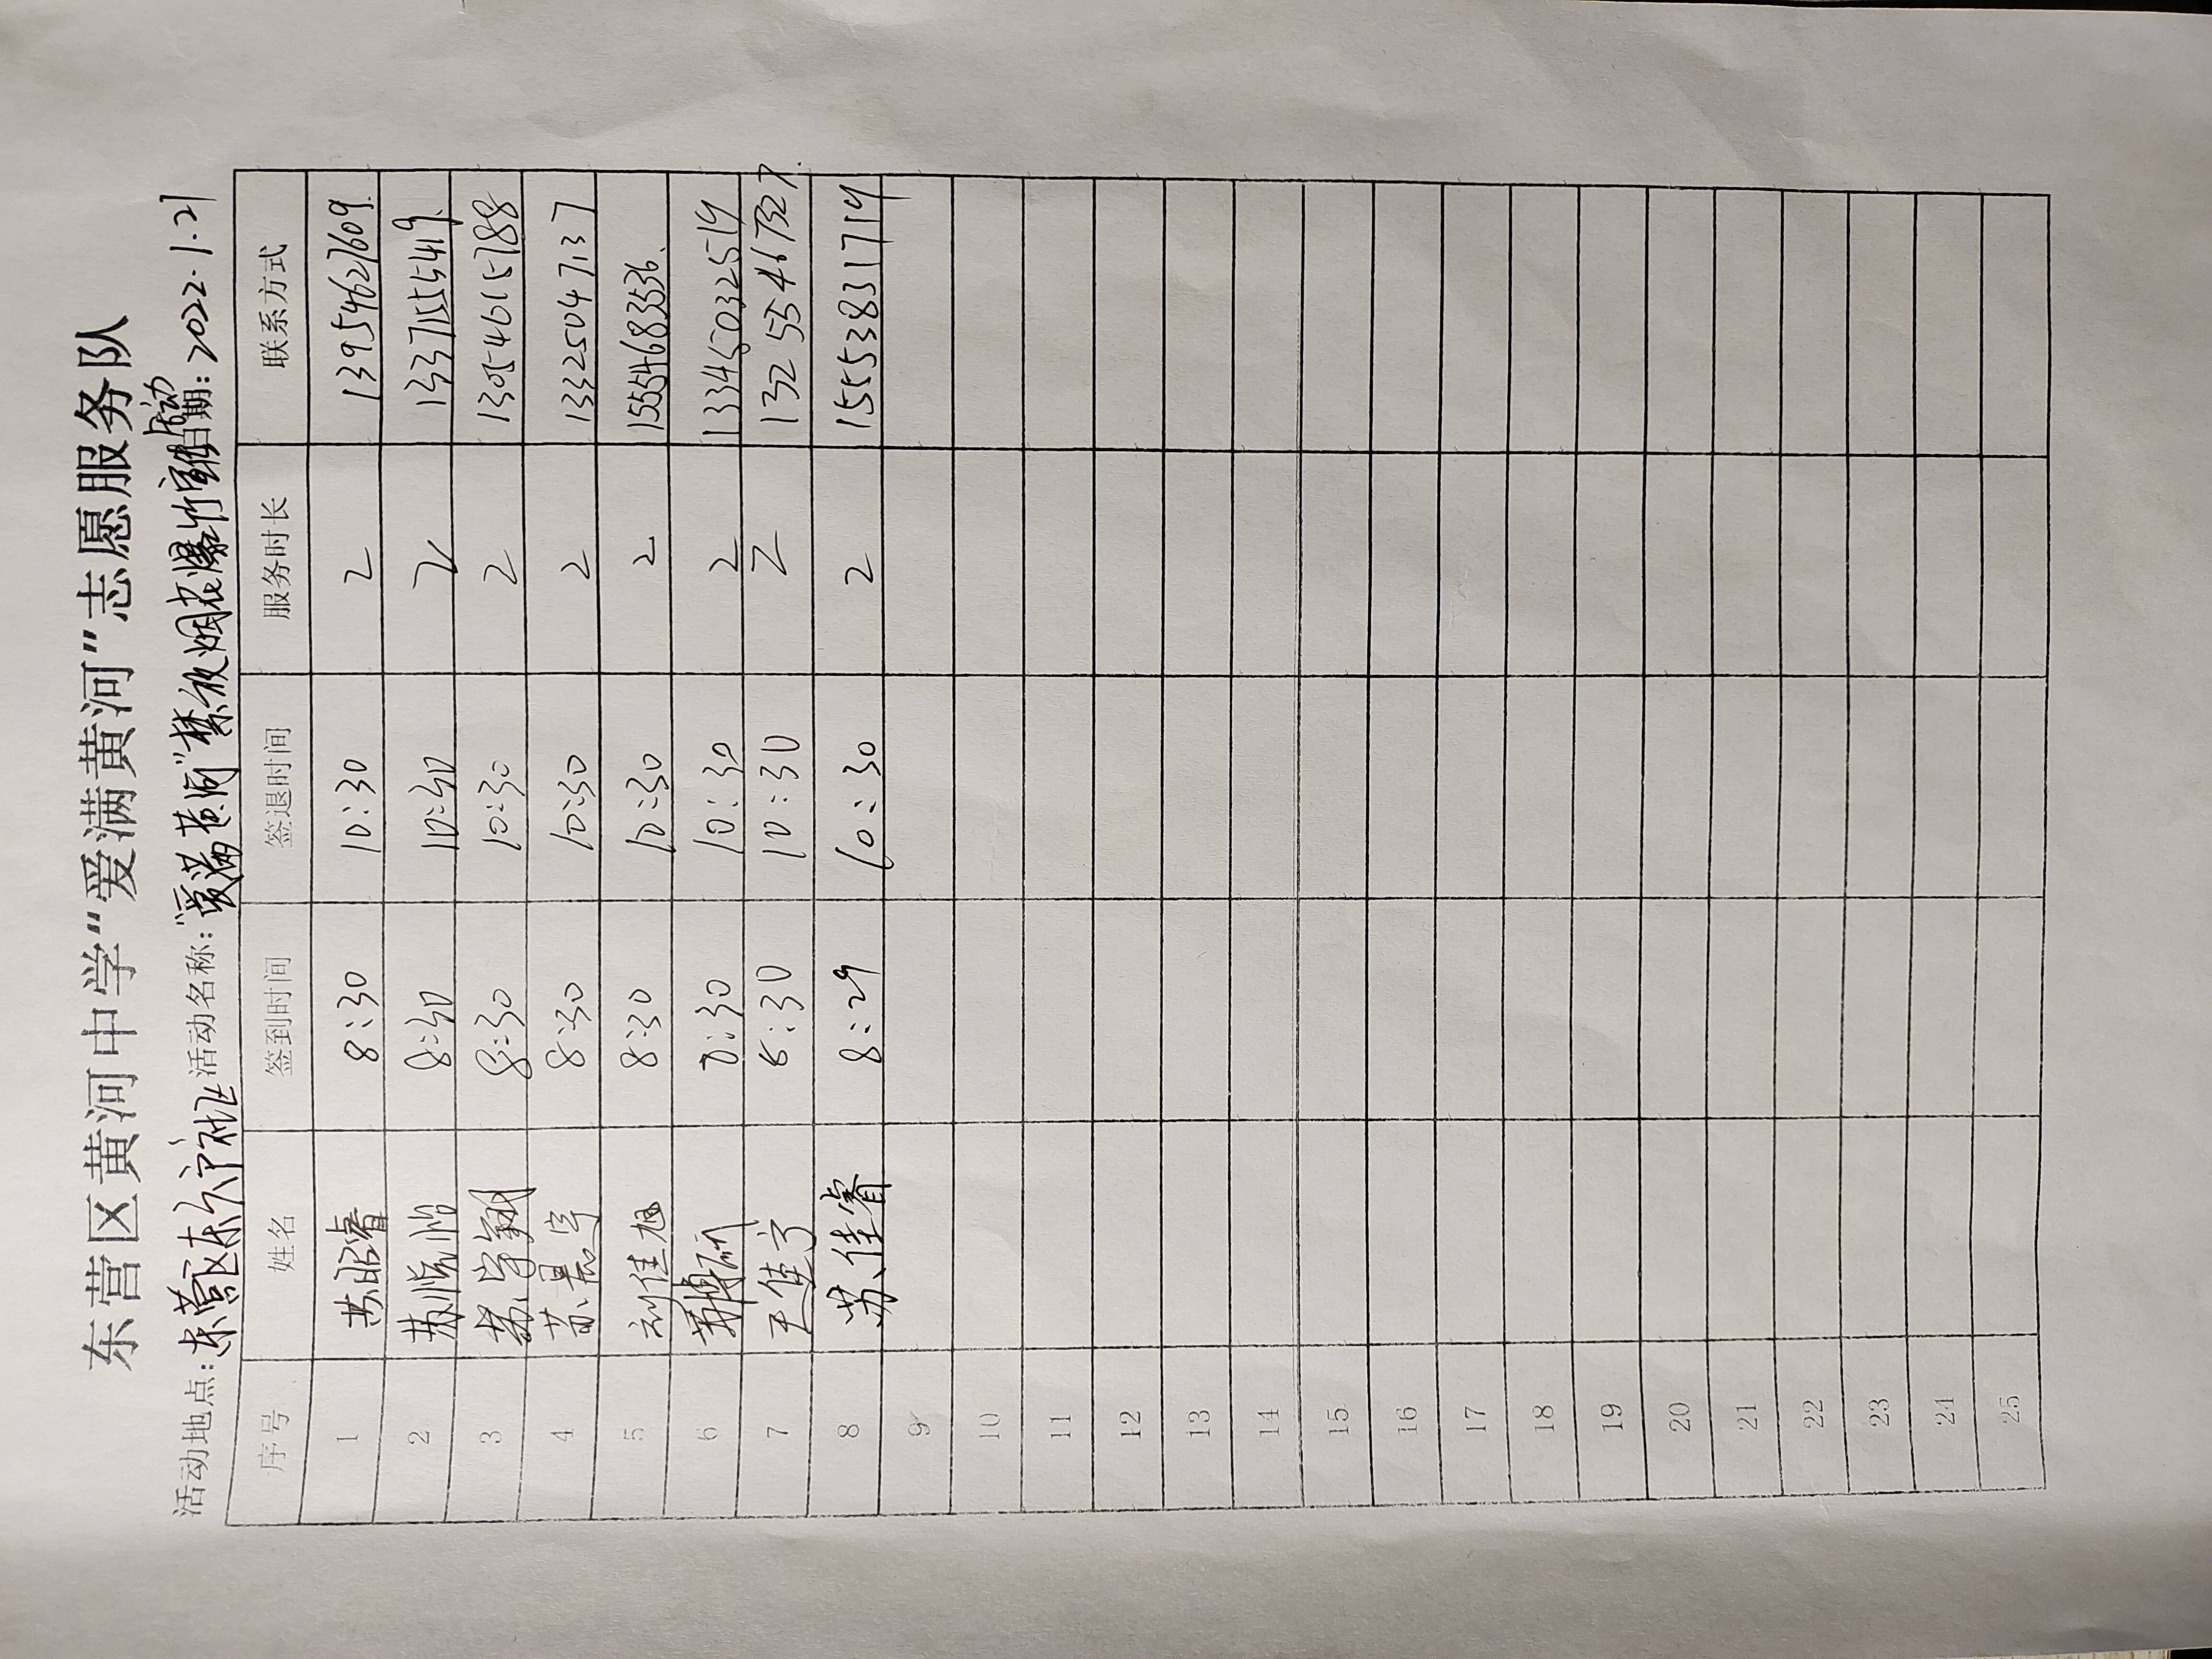 东营区黄河中学“爱满黄河”志愿服务队
活动地点:东营区东尔户社 活动名称:“爱满黄河”禁放烟花爆竹宣传活动 日期:2022.1.21
序号 姓名 签到时间 签退时间 服务时长 联系方式
1 苏昭睿 8:30 10:30 2 13954627609
2 8:30 10:30 2 13371555419
3 苏学翔 8:30 10:30 2 13054615788
4 苏晨宇 8:30 10:30 2 13325047137
5 刘佳旭 8:30 10:30 2 15554683536
6 8:30 10:30 2 13345032519
7 王佳宁 8:30 10:30 2 13255467327
8 苏佳睿 8:29 10:30 2 15553831719
9
10
11
12
13
14
15
16
17
18
19
20
21
22
23
24
25